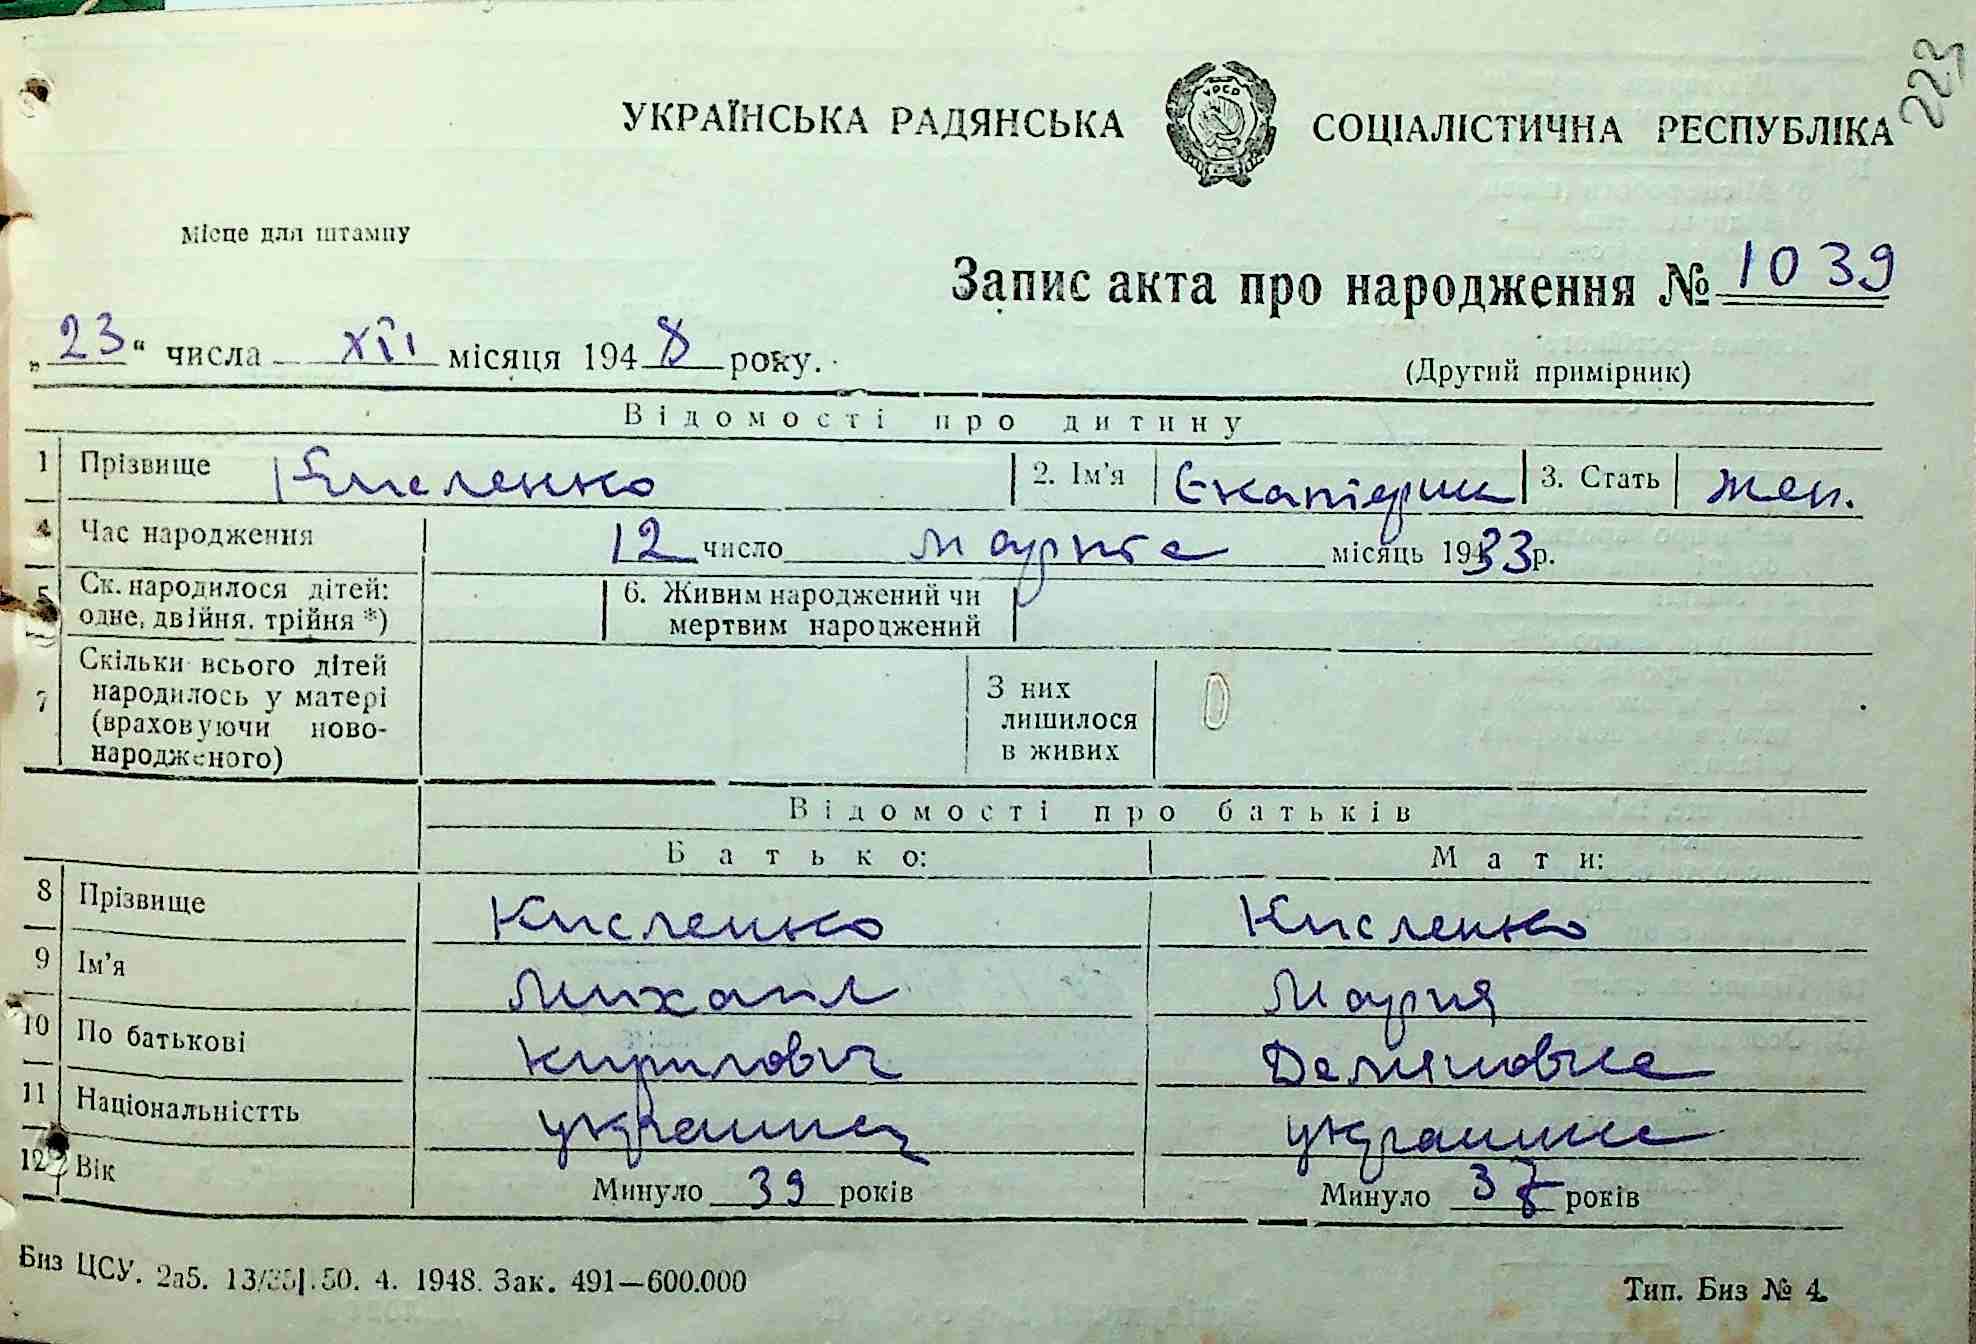 223
УКРАЇНСЬКА РАДЯНСЬКА СОЦІАЛІСТИЧНА РЕСПУБЛІКА
УРСР
Місце для штампу
Запис акта про народження № 1039
„23“ числа XII місяця 1948 року.
(Другий примірник)
Відомості про дитину
1 Прізвище Кисленко 2. Ім'я Екатерина 3. Стать жен.
4 Час народження 12 число марта місяць 1933 р.
5 Ск. народилося дітей: одне, двійня, трійня *) 6. Живим народжений чи мертвим народжений
7 Скільки всього дітей народилось у матері (враховуючи новонародженого) З них лишилося в живих
Відомості про батьків
Батько: Мати:
8 Прізвище Кисленко Кисленко
9 Ім'я Михаил Мария
10 По батькові Кирилович Демяновна
11 Національністть украинец украинка
12 Вік Минуло 39 років Минуло 37 років
Биз ЦСУ. 2а5. 13/35|.50. 4. 1948. Зак. 491—600.000 Тип. Биз № 4.